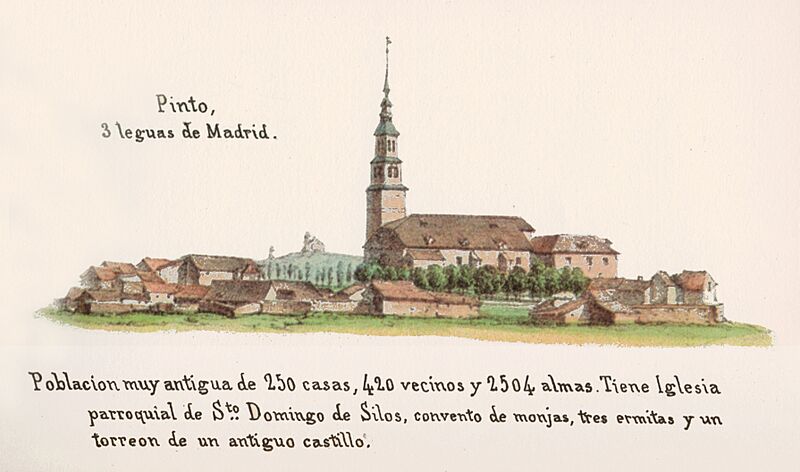 Pinto,
3 leguas de Madrid.
Poblacion muy antigua de 250 casas, 420 vecinos y 2504 almas. Tiene Iglesia
parroquial de Sto. Domingo de Silos, convento de monjas, tres ermitas y un
torreon de un antiguo castillo.